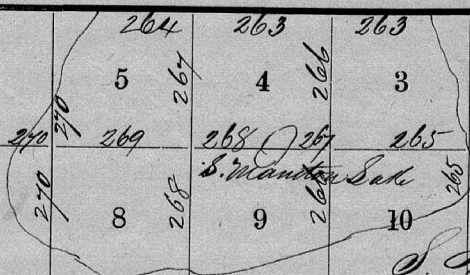 264 263 263
5 267 4 266 3
270
270 269 268 267 265
S. Manitou Lake
270 8 268 9 266 10 265